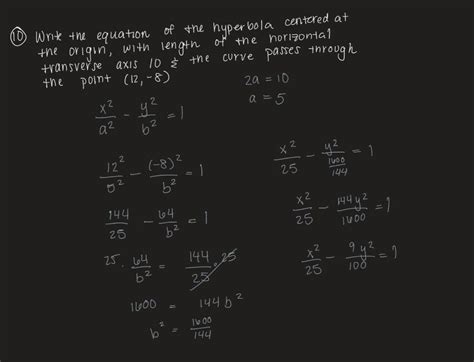 ⑩ Write the equation of the hyperbola centered at
the origin, with length of the horizontal
transverse axis 10 & the curve passes through
the point (12,-8)
2a = 10
a = 5
x²/a² - y²/b² = 1
12²/5² - (-8)²/b² = 1
144/25 - 64/b² = 1
25 · 64/b² = 144/25 · 25
1600 = 144b²
b² = 1600/144
x²/25 - y²/(1600/144) = 1
x²/25 - 144y²/1600 = 1
x²/25 - 9y²/100 = 1